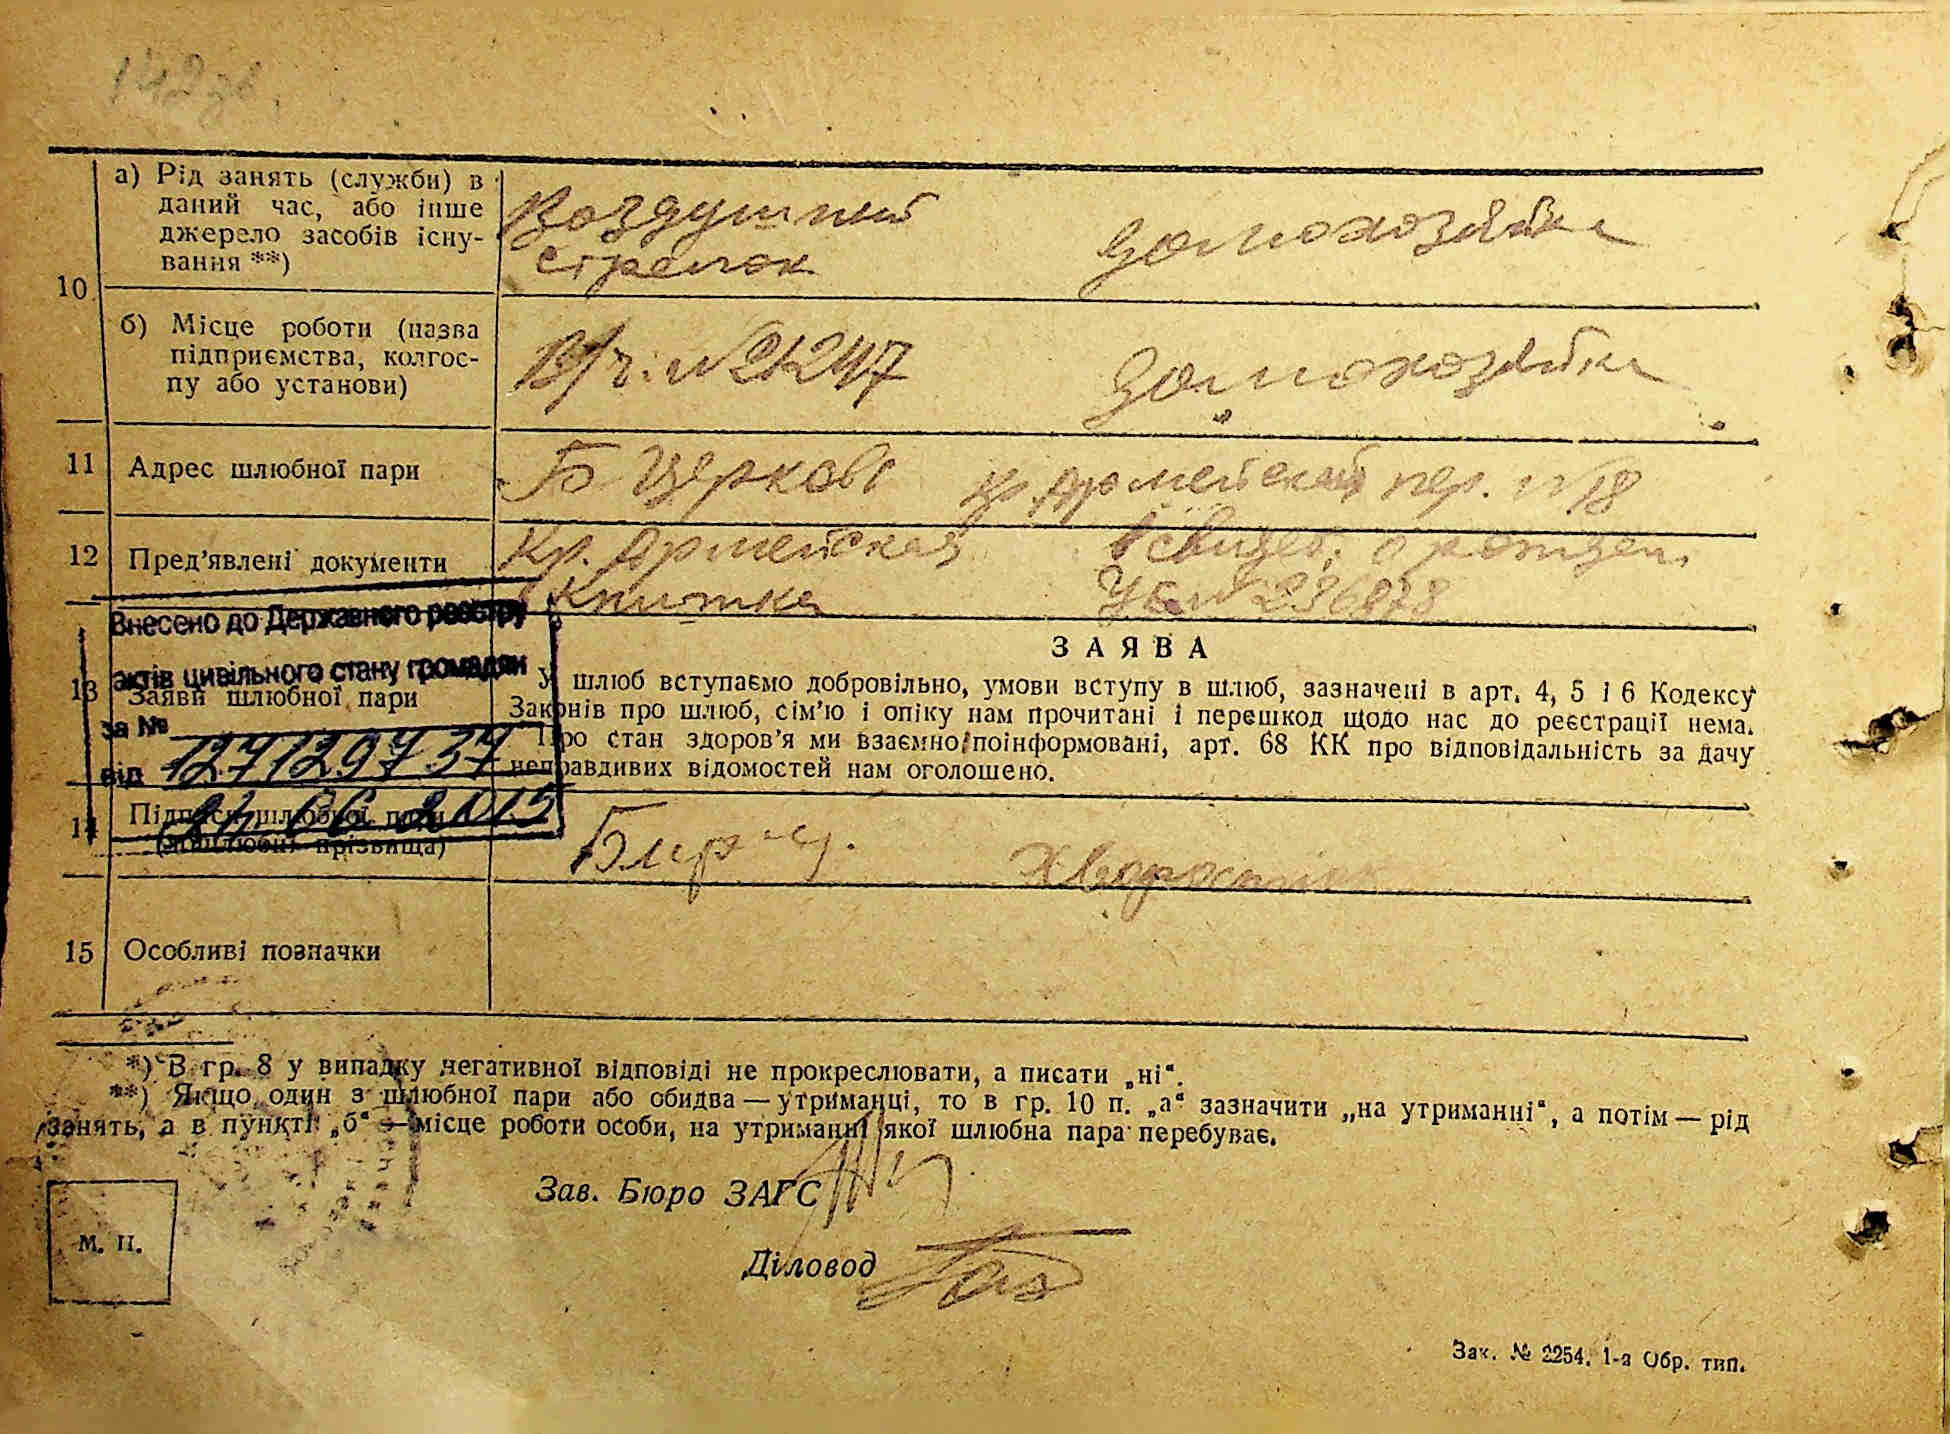 142зв.
а) Рід занять (служби) в
даний час, або інше
джерело засобів існу-
вання **)
Воздушный
стрелок
домохозяйка
10
б) Місце роботи (назва
підприємства, колгос-
пу або установи)
В/ч. №21247
домохозяйка
11 Адрес шлюбної пари
Б Церковь Кр. Армейский пер. №18
12 Пред’явлені документи
Кр. Армейская
Книжка
Свидет. о рожден.
УБ №236878
Внесено до Державного реєстру
актів цивільного стану громадян
за № 12712973
від 24 06 2015
13 Заяви шлюбної пари
ЗАЯВА
У шлюб вступаємо добровільно, умови вступу в шлюб, зазначені в арт. 4, 5 і 6 Кодексу
Законів про шлюб, сім’ю і опіку нам прочитані і перешкод щодо нас до реєстрації нема.
Про стан здоров’я ми взаємно поінформовані, арт. 68 КК про відповідальність за дачу
неправдивих відомостей нам оголошено.
14 Підписи шлюбної пари
(дошлюбні прізвища)
15 Особливі позначки
*) В гр. 8 у випадку негативної відповіді не прокреслювати, а писати „ні“.
**) Якщо один з шлюбної пари або обидва — утриманці, то в гр. 10 п. „а“ зазначити „на утриманні“, а потім — рід
занять, а в пункті „б“ — місце роботи особи, на утриманні якої шлюбна пара перебуває.
Зав. Бюро ЗАГС
М. П.
Діловод
Зак. № 2254. 1-а Обр. тип.